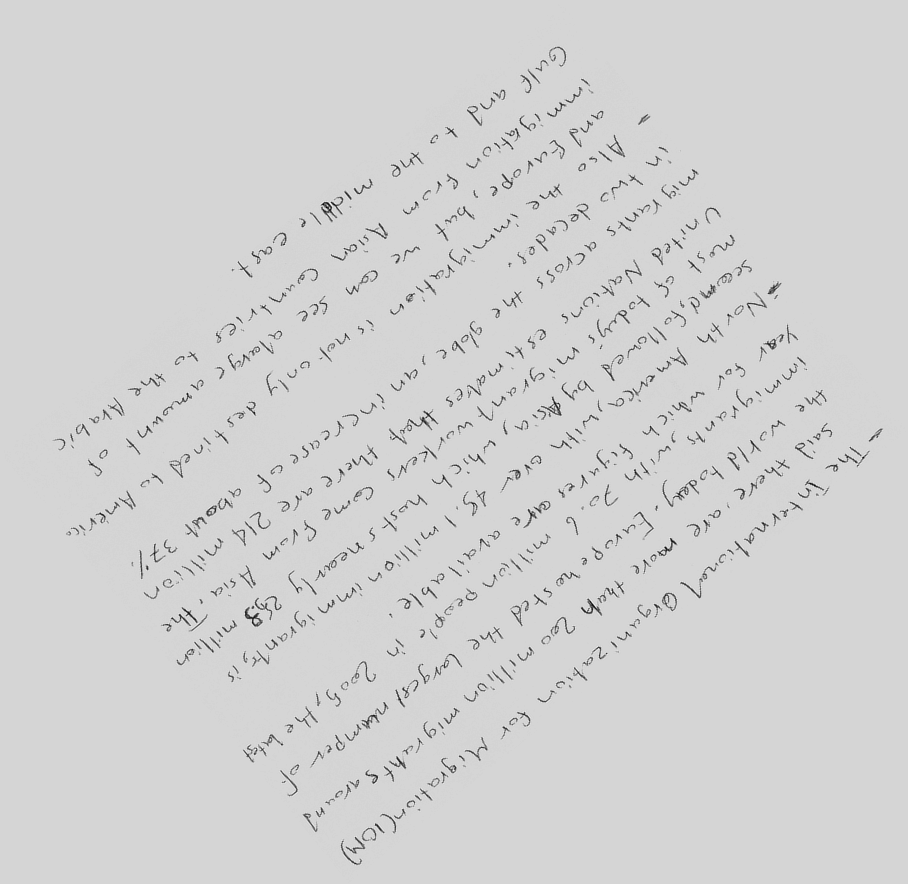 - The International Organization for Migration (IOM)
said there, are more than 200 million migrants around
the world today. Europe hosted the largest number of
immigrants, with 70.6 million people in 2005, the latest
year for which figures are available.
- North America, with over 45.1 million immigrants, is
second, followed by Asia, which hosts nearly 25.3 million
most of today's migrant workers come from Asia. The
United Nations estimates that there are 214 million
migrants across the globe, an increase of about 37%
in two decades.
- Also the immigration is not only destined to America
and Europe, but we can see a large amount of
immigration from Asian countries to the Arabic
Gulf and to the middle east.